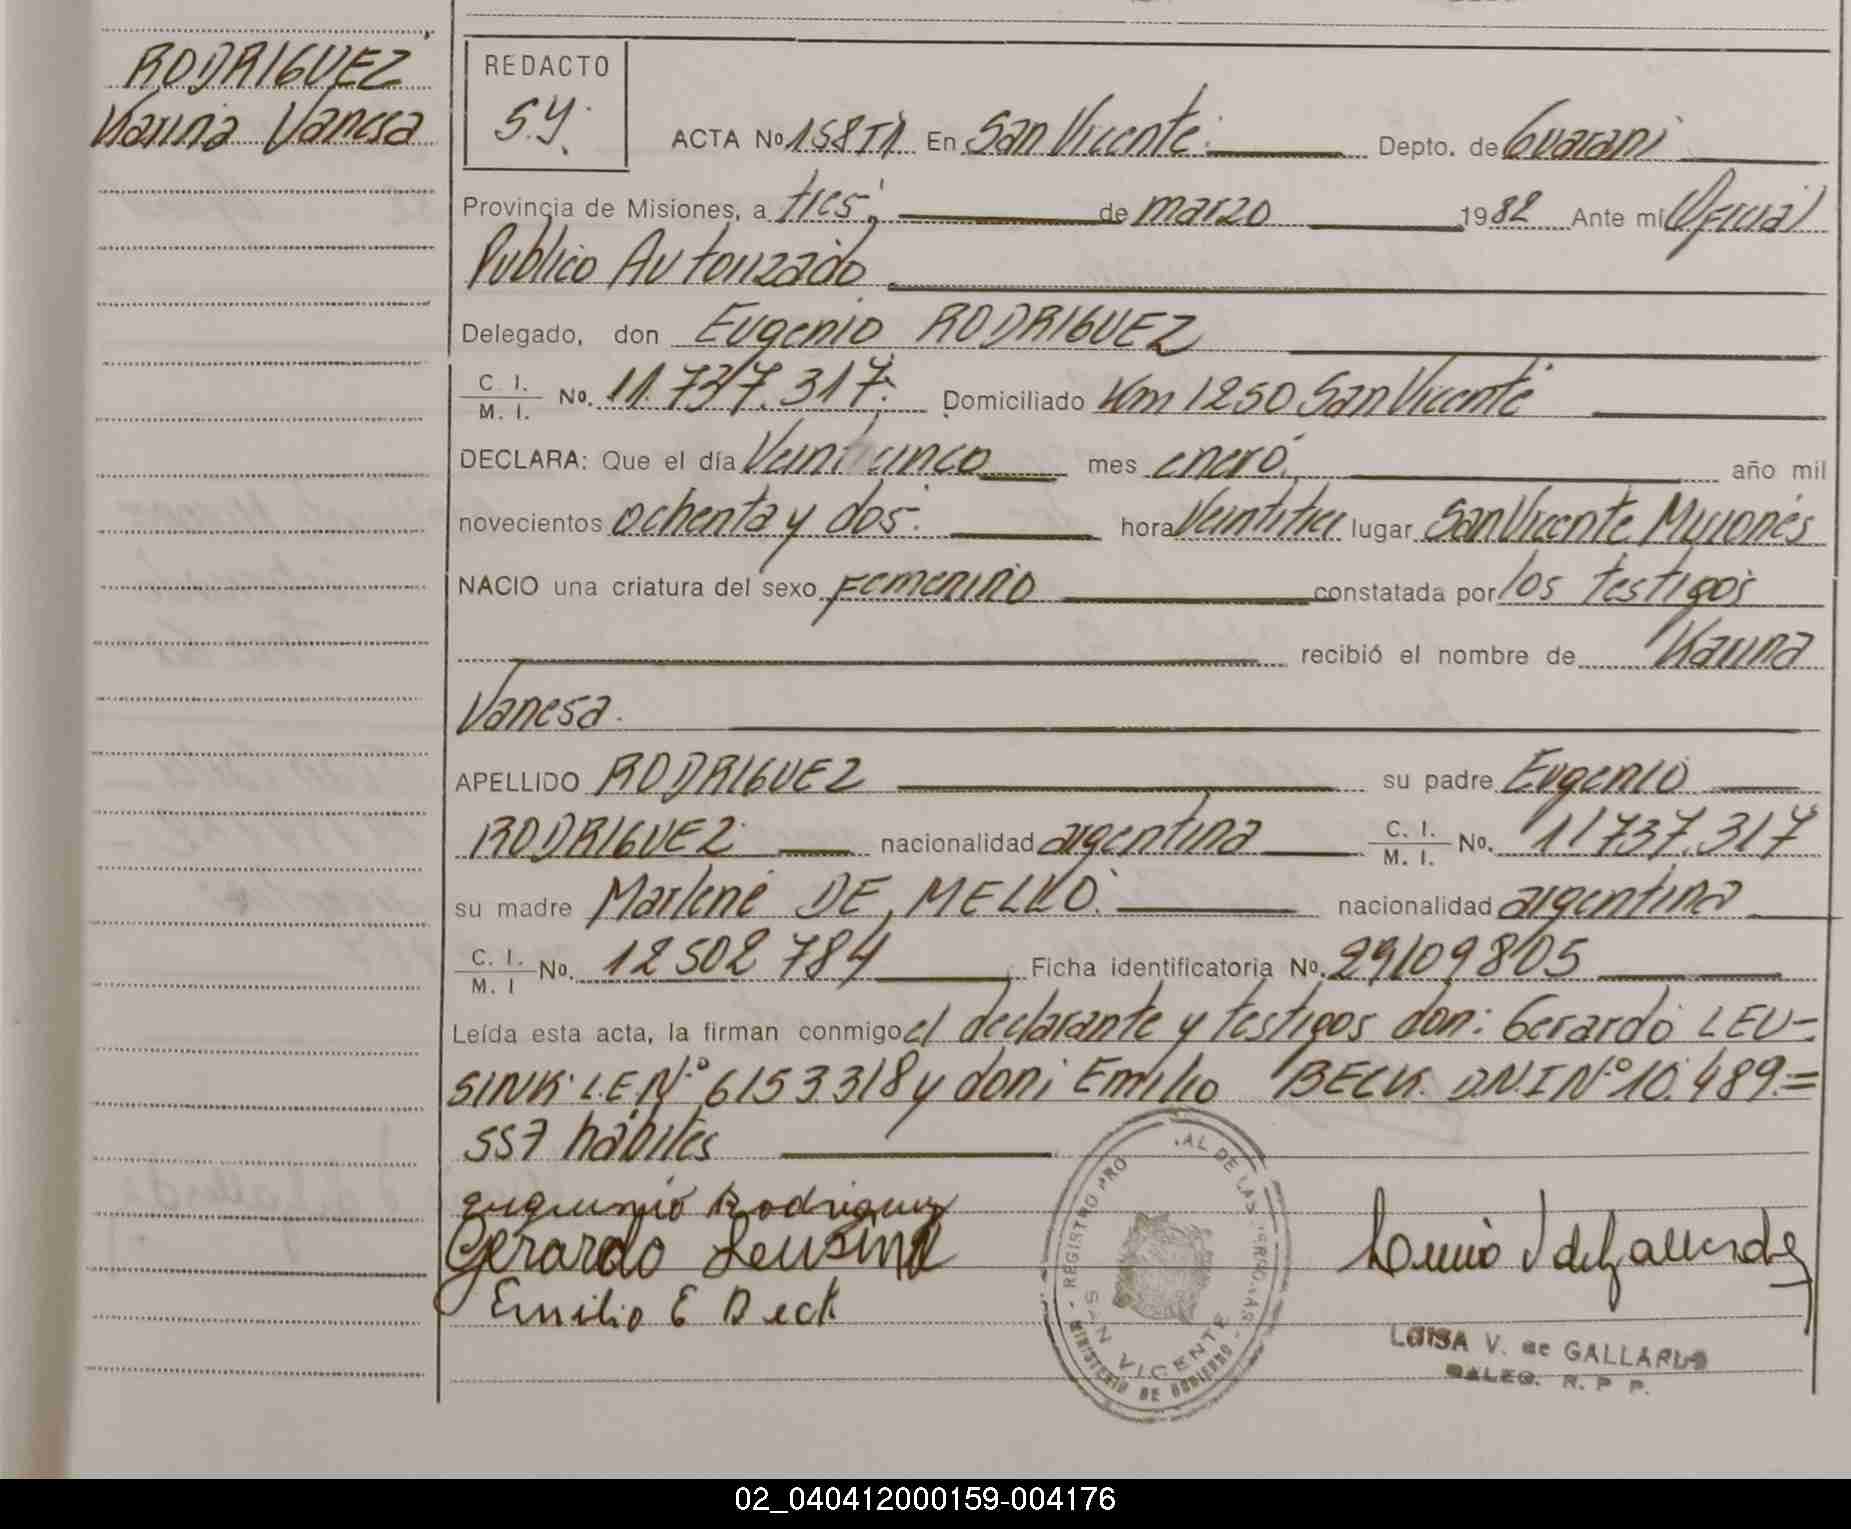 RODRIGUEZ
Karina Vanesa
REDACTO
S.Y.
ACTA No 158T1 En San Vicente. Depto. de Guarani
Provincia de Misiones, a tres, de marzo 1982 Ante mi Oficial
Publico Autorizado
Delegado, don Eugenio RODRIGUEZ
C. I. / M. I. No. 11.737.317. Domiciliado Km 1250 San Vicente
DECLARA: Que el día Veinticinco mes enero. año mil
novecientos ochenta y dos. hora Veintitres lugar San Vicente Misiones
NACIO una criatura del sexo Femenino constatada por los testigos
recibió el nombre de Karina
Vanesa.
APELLIDO RODRIGUEZ su padre Eugenio
RODRIGUEZ nacionalidad argentina C. I. / M. I. No. 11737.317
su madre Marlene DE MELLO. nacionalidad argentina
C. I. / M. I No. 12502784 Ficha identificatoria No. 29109805
Leída esta acta, la firman conmigo el declarante y testigos don: Gerardo LEU-
SINK L.E.Nº 6153318 y don: Emilio BECK. D.N.I Nº 10.489.=
557 hábiles
Eugenio Rodriguez
Gerardo Leusink
Emilio E Beck
REGISTRO PRO AL DE LAS PERSONAS
SAN VICENTE
MINISTERIO DE GOBIERNO
LUISA V. de GALLARDO
DALEG. R. P P.
02_040412000159-004176